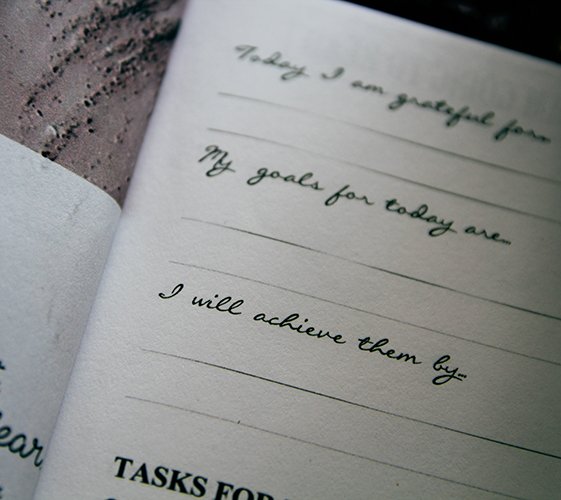 Today I am grateful for...
My goals for today are...
I will achieve them by...
TASKS FOR